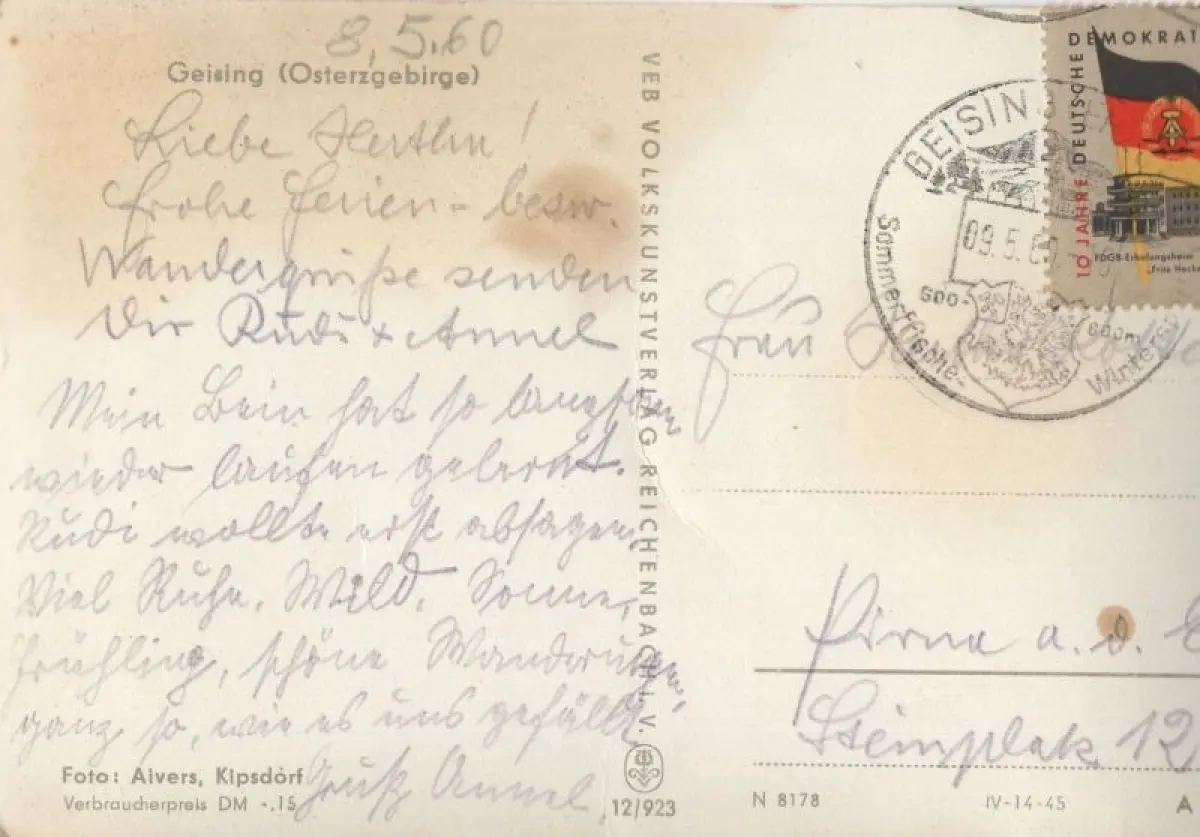 8.5.60
Geising (Osterzgebirge)
Liebe Hertha!
Frohe Ferien- bezw.
Wandergrüße senden
Dir Rudi + Annel
Mein Bein hat so langsam
wieder laufen gelernt.
Rudi wollte erst absagen.
Viel Ruhe, Wild, Sonne,
Frühling, schöne Wanderungen,
ganz so, wie es uns gefällt.
Gruß Annel
Foto: Aivers, Kipsdorf
Verbraucherpreis DM -.15
VEB VOLKSKUNSTVERLAG REICHENBACH i. V.
12/923
10 JAHRE DEUTSCHE DEMOKRAT
FDGB-Erholungsheim
„Fritz Hecke
GEISIN
09.5.60
600-
600m
Sommerfrische-
Wintersp
Frau
Pirna a. d. E
Steinplatz 12
N 8178
IV-14-45
A